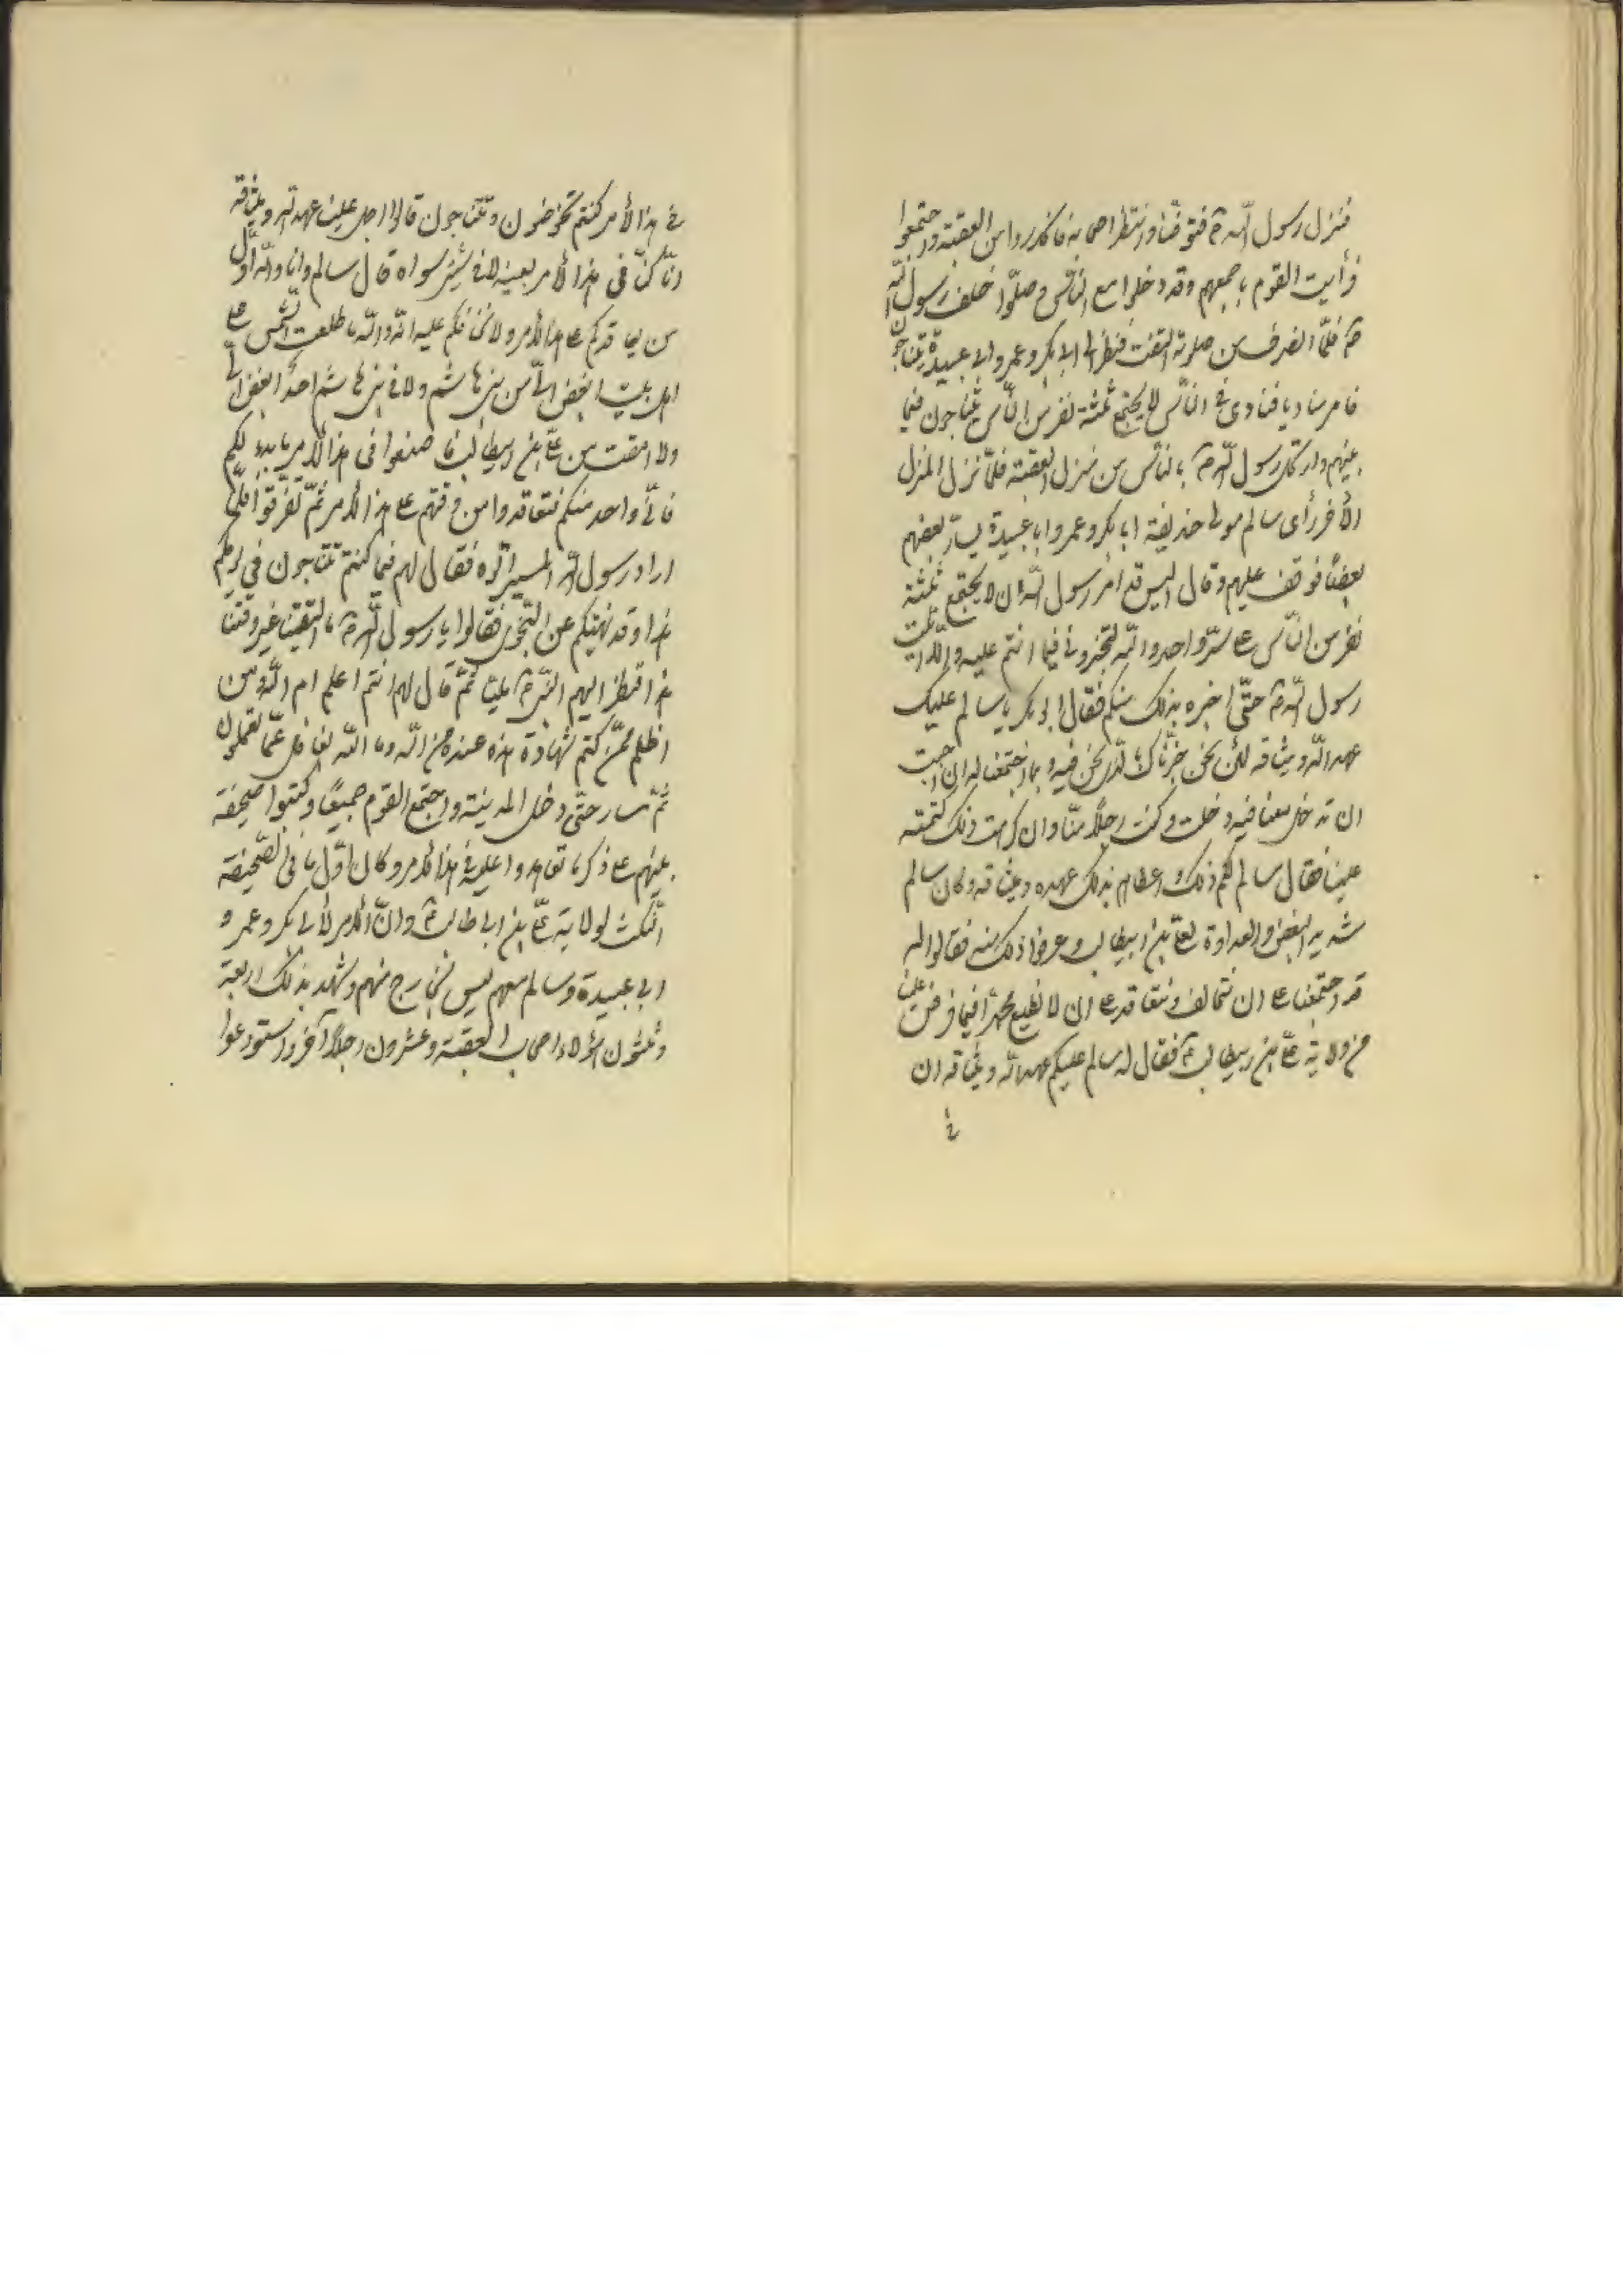 فنزل رسول اللّه ص فتوضّأ وانتظر اصحابه فانحدروا من العقبة واجتمعوا
فرأيت القوم باجمعهم وقد دخلوا مع النّاس وصلّوا خلف رسول اللّه
ص فلمّا انصرف من صلوته التفت فنظر الى ابى بكر وعمر وابى عبيدة يتناجون
فامر مناديا فنادى فى النّاس لا يجتمع ثلثة نفر من النّاس يتناجون فيما
بينهم وارتحل رسول اللّه ص بالنّاس من منزل العقبة فلمّا نزل المنزل
الأخر رأى سالم مولى حذيفة ابا بكر وعمر وابا عبيدة يسارّ بعضهم
بعضاً فوقف عليهم وقال اليس قد امر رسول اللّه ان لا يجتمع ثلثة
نفر من النّاس على سرّ واحد واللّه لتخبرونى فيما انتم عليه والّا اتيت
رسول اللّه ص حتّى اخبره بذلك منكم فقال ابو بكر يا سالم عليك
عهد اللّه وميثاقه لئن نحن خبّرناك بالّذى نحن فيه وبما اجتمعنا له ان احببت
ان تدخل معنا فيه دخلت وكنت رجلاً منّا وان كرهت ذلك كتمته
علينا فقال سالم لكم ذلك واعطاهم بذلك عهده وميثاقه وكان سالم
شديد البغض والعداوة لعلىّ بن ابيطالب وعرفوا ذلك منه فقالوا له
قد اجتمعنا على ان نتحالف ونتعاقد على ان لا نطيع محمّداً فيما فرض علينا
من ولاية علىّ بن ابيطالب ع فقال له سالم عليكم عهد اللّه وميثاقه ان
فى
فى هذا الأمر كنتم تخوضون وتتناجون قالوا اجل علينا عهد اللّه وميثاقه
انّا كنّا فى هذا الأمر بعينه لا فى شىء سواه قال سالم وانا واللّه اوّل
من يعاقدكم على هذا الأمر ولا يخالفكم عليه انّه واللّه ما طلعت الشّمس على
اهل بيت ابغض الىّ من بنى هاشم ولا فى بنى هاشم احدٌ ابغض الىّ
ولا امقت من علىّ بن ابيطالب فاصنعوا فى هذا الأمر ما بدا لكم
فانّى واحد منكم فتعاقدوا من وقتهم على هذا الأمر ثمّ تفرّقوا فلمّا
اراد رسول اللّه المسير اتوه فقال لهم فيما كنتم تتناجون فى يومكم
هذا وقد نهيتكم عن النّجوى فقالوا يا رسول اللّه ص ما التقينا غير وقتنا
هذا فنظر اليهم النّبى ص مليّا ثمّ قال لهم انتم اعلم ام اللّه ومن
اظلم ممّن كتم شهادة هذه عنده من اللّه وما اللّه بغافل عمّا تعملون
ثمّ سار حتّى دخل المدينة واجتمع القوم جميعاً وكتبوا صحيفة
بينهم على ذكر ما تعاهدوا عليه فى هذا الأمر وكان اوّل ما فى الصّحيفة
النّكث لولاية علىّ بن ابى طالب ع وانّ الأمر لأبى بكر وعمر و
ابى عبيدة وسالم معهم ليس بخارج منهم وشهد بذلك اربعة
وثلثون هؤلاء اصحاب العقبة وعشرون رجلاً آخر واستودعوا